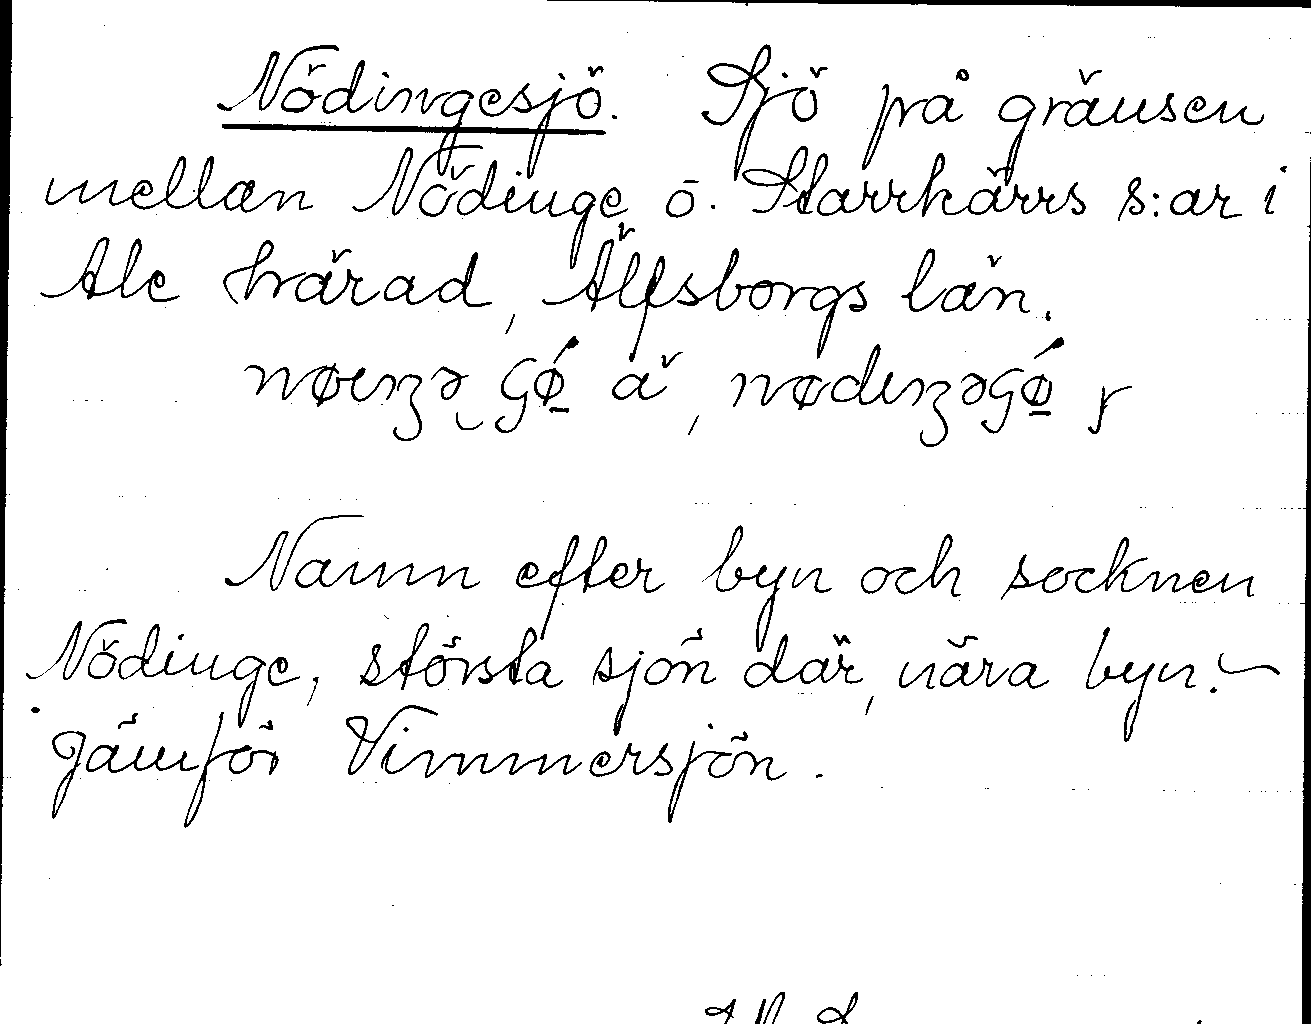 Nödingesjö. Sjö på gränsen
mellan Nödinge o. Starrkärrs s:ar i
Ale härad, Älfsborgs län.
Namn efter byn och socknen
Nödinge, största sjön där, nära byn. –
Jämför Vimmersjön.